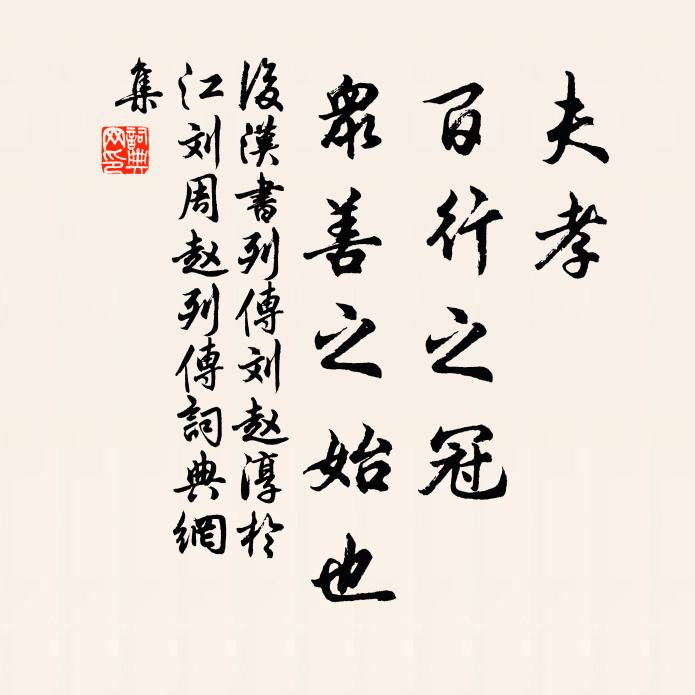 夫孝
百行之冠
眾善之始也
後漢書列傳刘赵淳於
江刘周赵列傳詞典網
集
詞典
网印